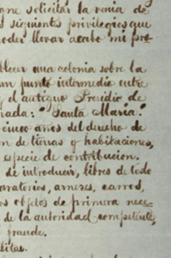 ane solicitar la venia de
s siguientes privilegios que
poder llevar acabo mi pro
blecer una colonia sobre la
un punto intermedio entre
y el antiguo Presidio de
rada: "Santa Maria."
cinco años del derecho de
n de tierras y habitaciones,
especie de contribucion.
de introducir, libres de todo
aratorios, arneses, carros,
os objetos de primera nece
de la autoridad competente,
fraude.